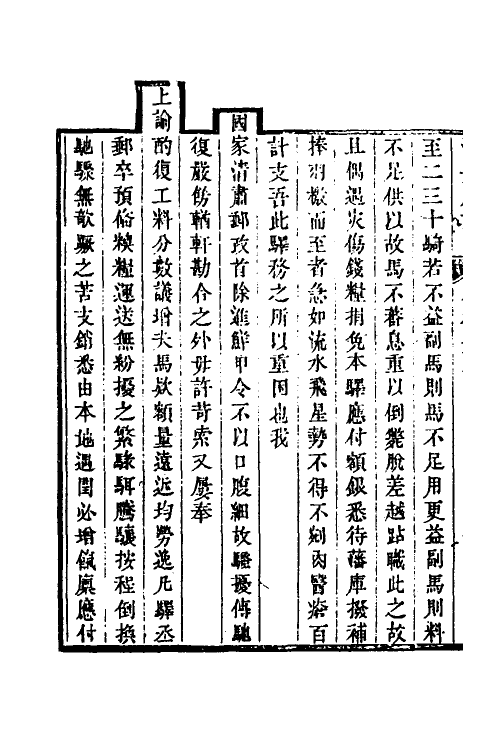 至二三十騎若不益副馬則馬不足用更益副馬則料
不足供以故馬不蕃息重以倒斃脫差越點職此之故
且偶遇災傷錢糧捐免本驛應付額銀悉待藩庫撥補
捧羽檄而至者急如流水飛星勢不得不剜肉醫瘡百
計支吾此驛務之所以重困也我
國家清肅郵政首除進鮮甲令不以口腹細故驛擾傳馳
復嚴飭輶軒勘合之外毋許苛索又屢奉
上諭酌復工料分數議增夫馬欵額量遠近均勞逸凡驛丞
郵卒預備糗糧運送無紛擾之繁駼駬騰驤按程倒換
馳驟無欹驅之苦支銷悉由本地遇閏必增餼廪應付